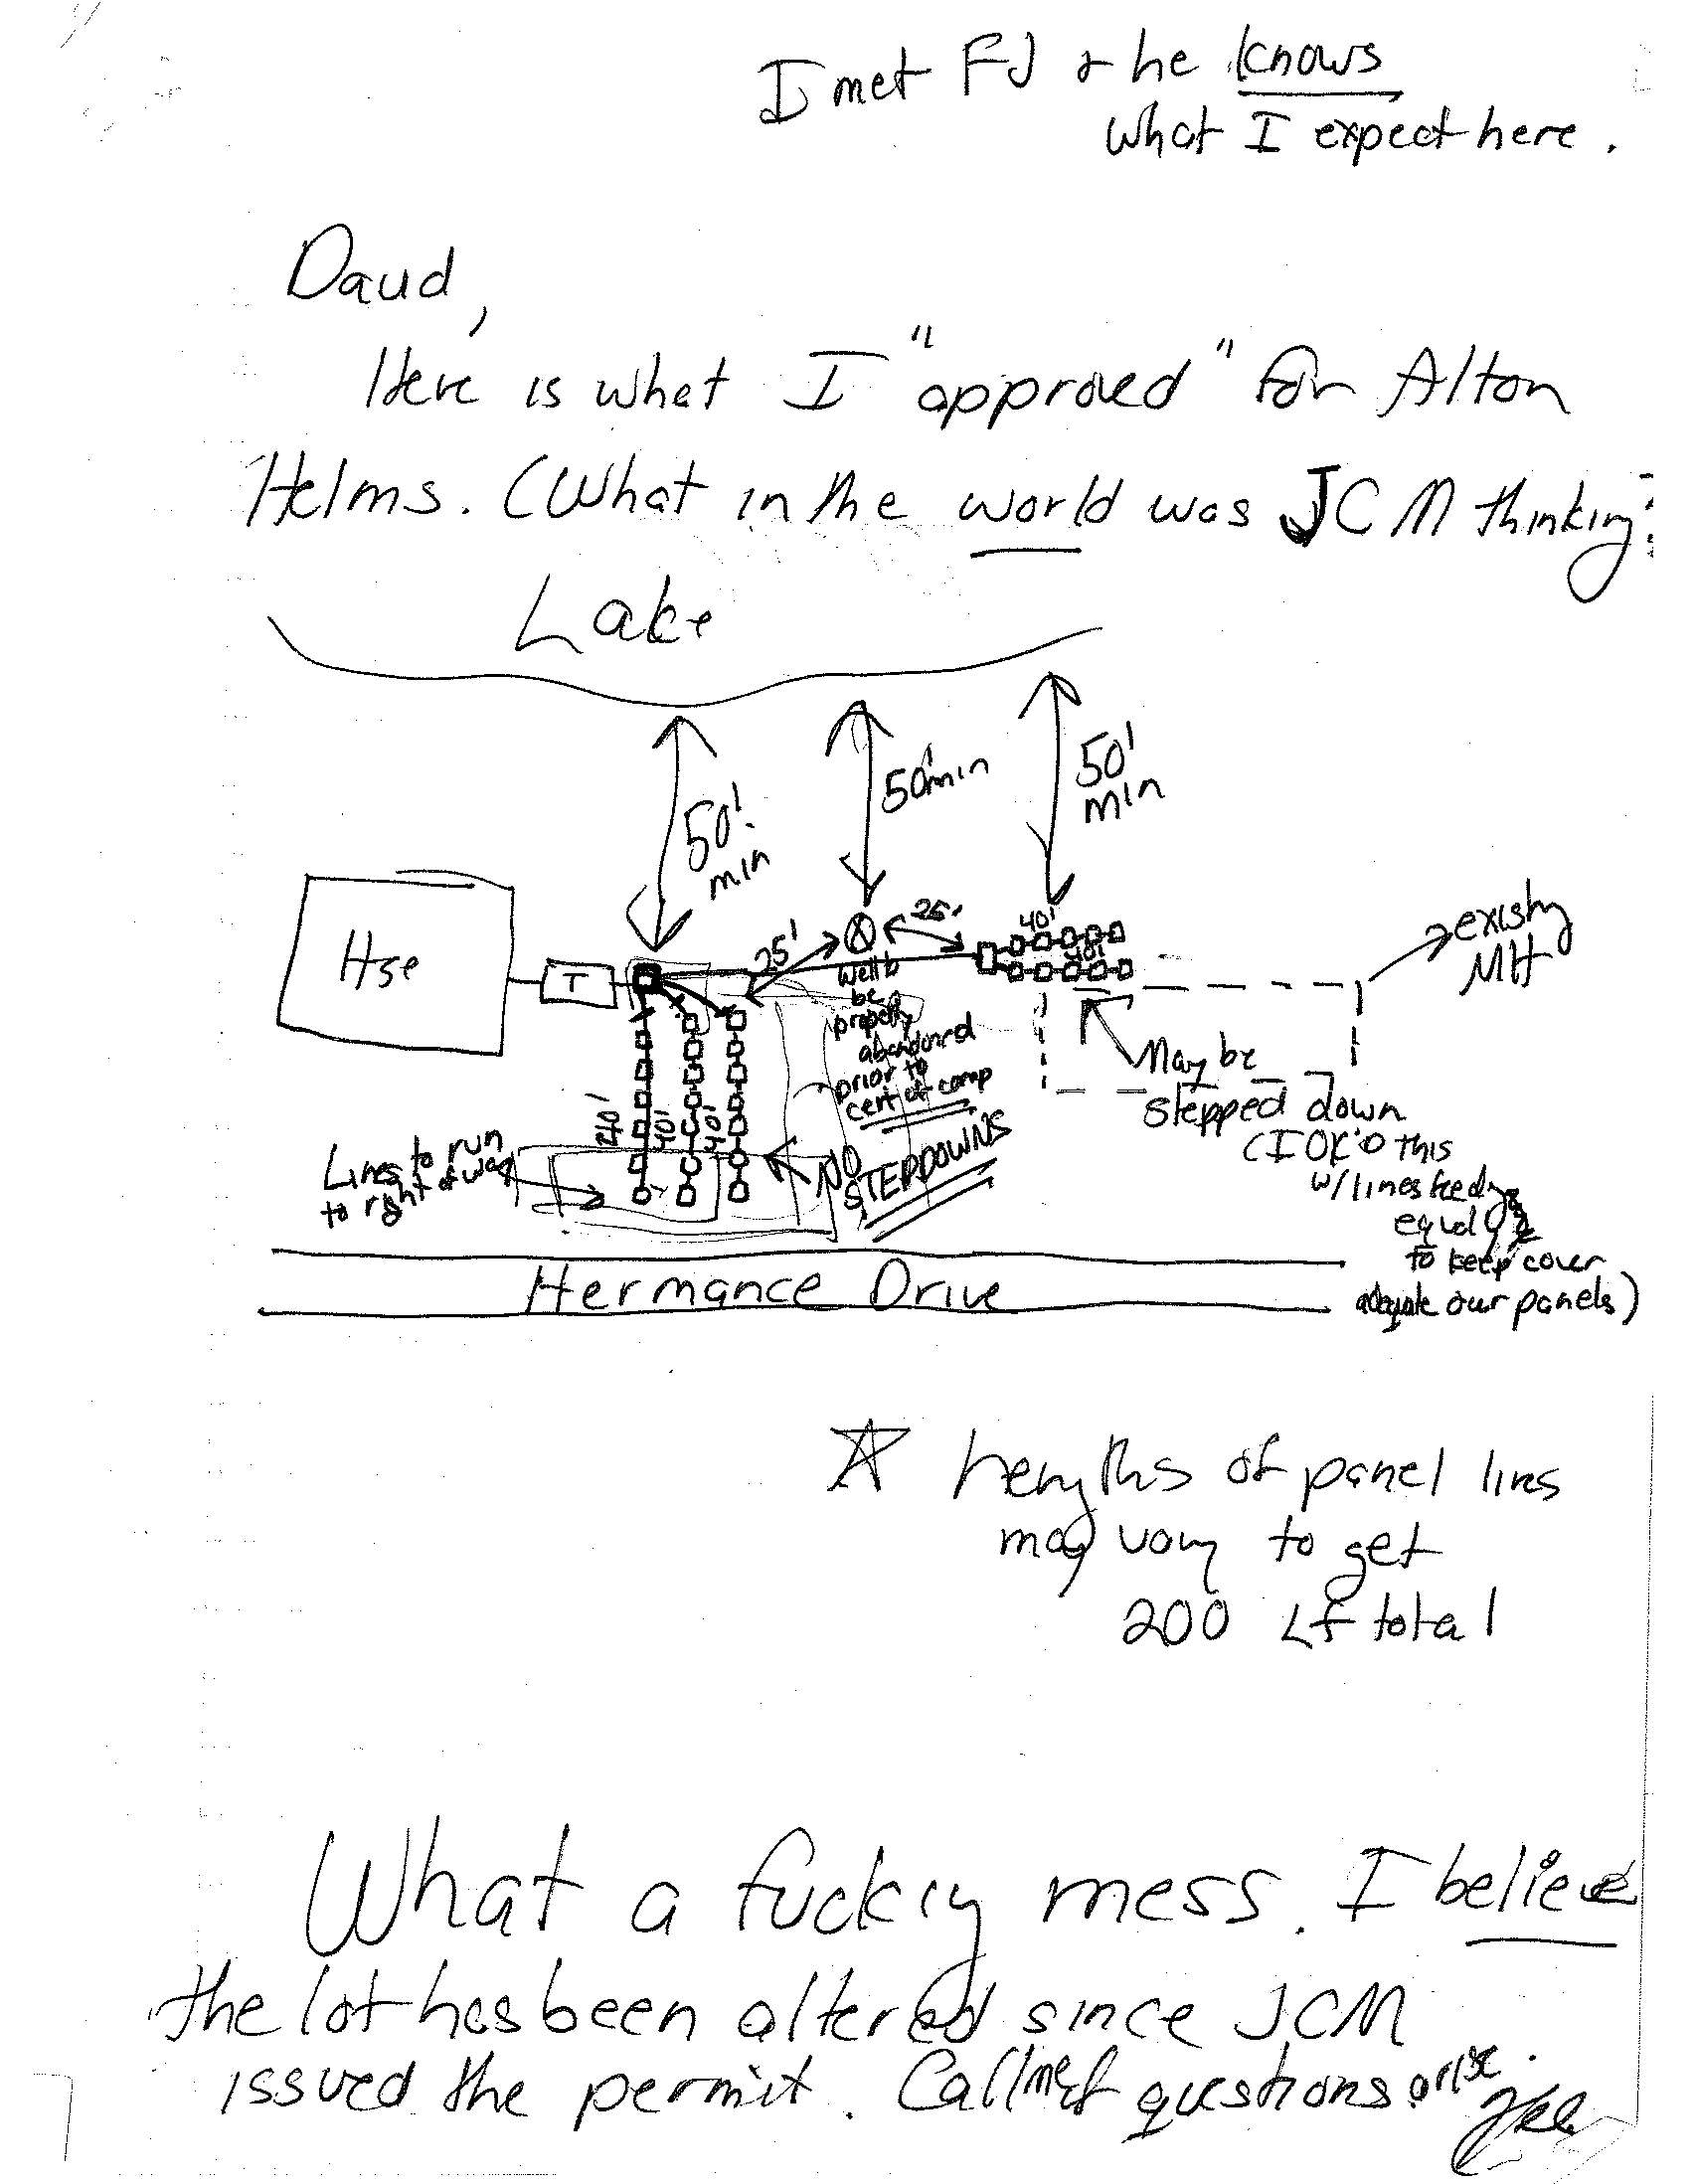 I met FJ & he knows
what I expect here.
David,
Here is what I "approved" for Alton
Helms. (What in the world was JCM thinking?
Lake
50' min
50' min
50' min
Hse
T
25'
25'
40'
40'
existing MH
Well to
be
properly
abandoned
prior to
cert of comp
May be
stepped down
(I OK'd this
w/ lines feeding
equally
to keep cover
adequate over panels)
40'
40'
40'
Lines to run
to right of way
NO
STEPDOWNS
Hermance Drive
☆ Lengths of panel lines
may vary to get
200 LF total
What a fucking mess. I believe
the lot has been altered since JCM
issued the permit. Call me if questions arise.